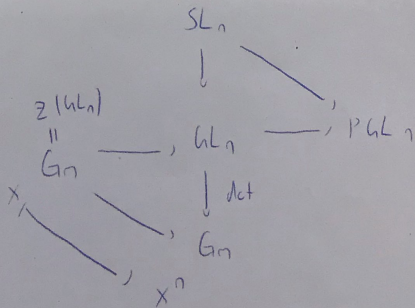 SLn
Z(GLn)
=
Gm → GLn → PGLn
det
x
Gm
xn